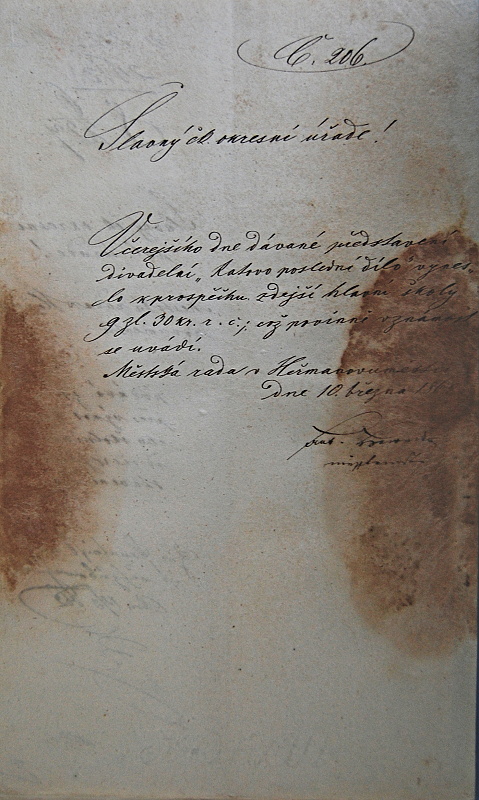 Č. 206.
Slavný c.k. okresní úřade!
Včerejšího dne dávané představení
divadelní „Katovo poslední dílo“ vynes-
lo k prospěchu zdejší hlavní školy
9 zl. 30 kr. r. č.; což povinně v známost
se uvádí.
Městská rada v Heřmanověměstci
dne 10. března